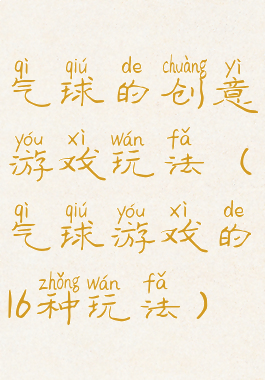 qì qiú de chuàng yì
气球的创意
yóu xì wán fǎ
游戏玩法（
qì qiú yóu xì de
气球游戏的
zhǒng wán fǎ
16种玩法）